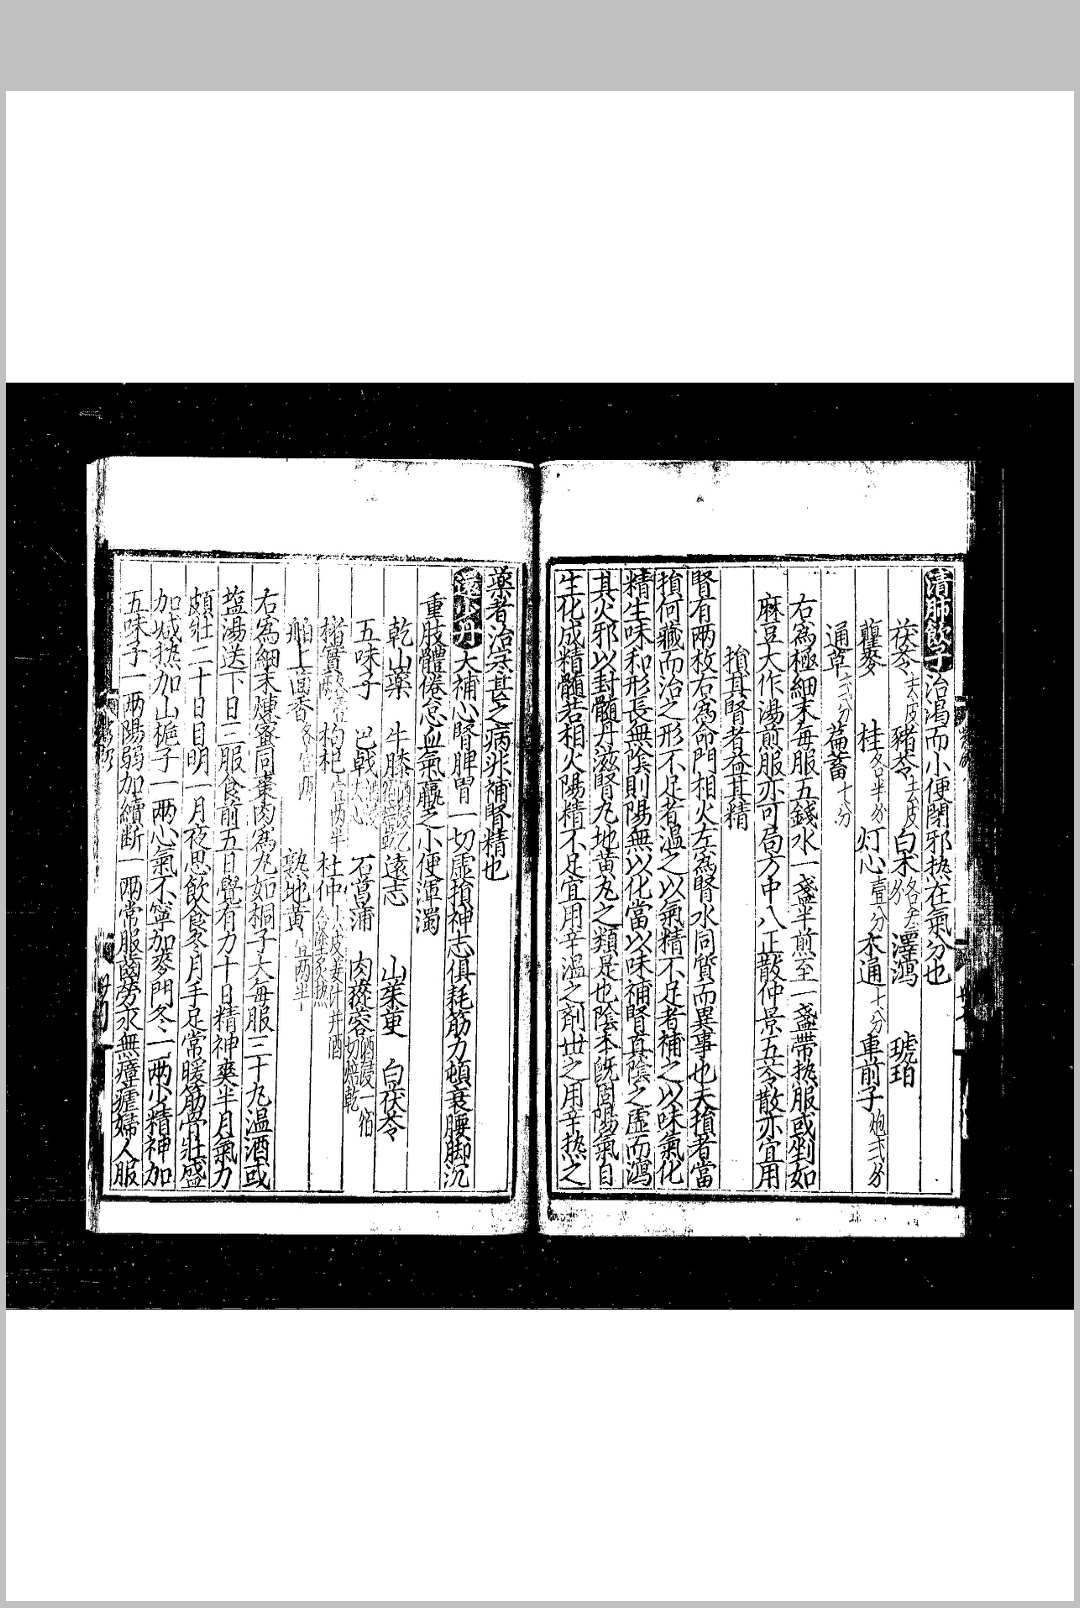 清肺飲子治渴而小便閉邪热在氣分也
茯苓去皮 豬苓去皮 白术 各 澤瀉 琥珀
瞿麥 桂各半分 灯心壹分 木通十八分 車前子炮弍分
通草弍分 萹蓄十分
右爲極細末每服五錢水一盞半煎至一盞帶热服或剉如
麻豆大作湯煎服亦可局方中八正散仲景五苓散亦宜用
損其腎者益其精
腎有兩枚右爲命門相火左爲腎水同質而異事也夫損者當
損何臟而治之形不足者溫之以氣精不足者補之以味氣化
精生味和形長無陰則陽無以化當以味補腎真陰之虛而瀉
其火邪以封髓丹滋腎丸地黃丸之類是也陰本既固陽氣自
生化成精髓若相火陽精不足宜用辛溫之剤世之用辛热之
藥者治寒甚之病非補腎精也
還少丹大補心腎脾胃一切虛損神志俱耗筋力頓衰腰脚沉
重肢體倦怠血氣羸乏小便渾濁
乾山藥 牛膝 遠志 山茱萸 白茯苓
五味子 巴戟 石菖蒲 肉蓯蓉酒浸一宿切焙乾
楮實 枸杞 杜仲
舶上茴香各 熟地黃
右爲細末煉蜜同棗肉爲丸如桐子大每服三十丸温酒或
盐湯送下日三服食前五日覺有力十日精神爽半月氣力
頗壯二十日目明一月夜思飲食冬月手足常暖筋骨壯盛
加减热加山梔子一两心氣不寧加麥門冬二两少精神加
五味子一两陽弱加續斷一两常服齒勞永無瘴瘧婦人服